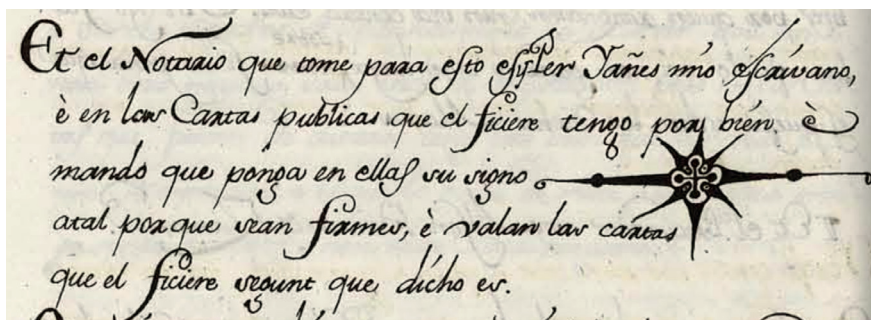 Et el Notario que tome para esto es Per Yañes mío escrivano,
è en las Cartas publicas que el ficiere tengo por bién. è
mando que ponga en ellas su signo
atal porque sean firmes, è valan las cartas
que el ficiere segunt que dícho es.